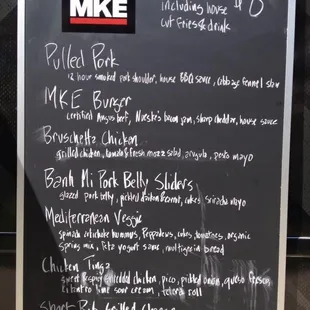 MKE
including house
cut fries & drink
Pulled Pork
12 hour smoked pork shoulder, house BBQ sauce, cabbage fennel slaw
MKE Burger
certified Angus beef, Nueske's bacon jam, sharp cheddar, house sauce
Bruschetta Chicken
grilled chicken, tomato & fresh mozz salad, arugula, pesto mayo
Banh Mi Pork Belly Sliders
glazed pork belly, pickled daikon & carrot, cukes, sriracha mayo
Mediterranean Veggie
spinach artichoke hummus, Peppadews, cukes, tomatoes, organic
spring mix, feta yogurt sauce, multigrain bread
Chicken Tinga
sweet & spicy shredded chicken, pico, pickled onion, queso fresco,
cilantro lime sour cream, telera roll
Short Rib Grilled Cheese